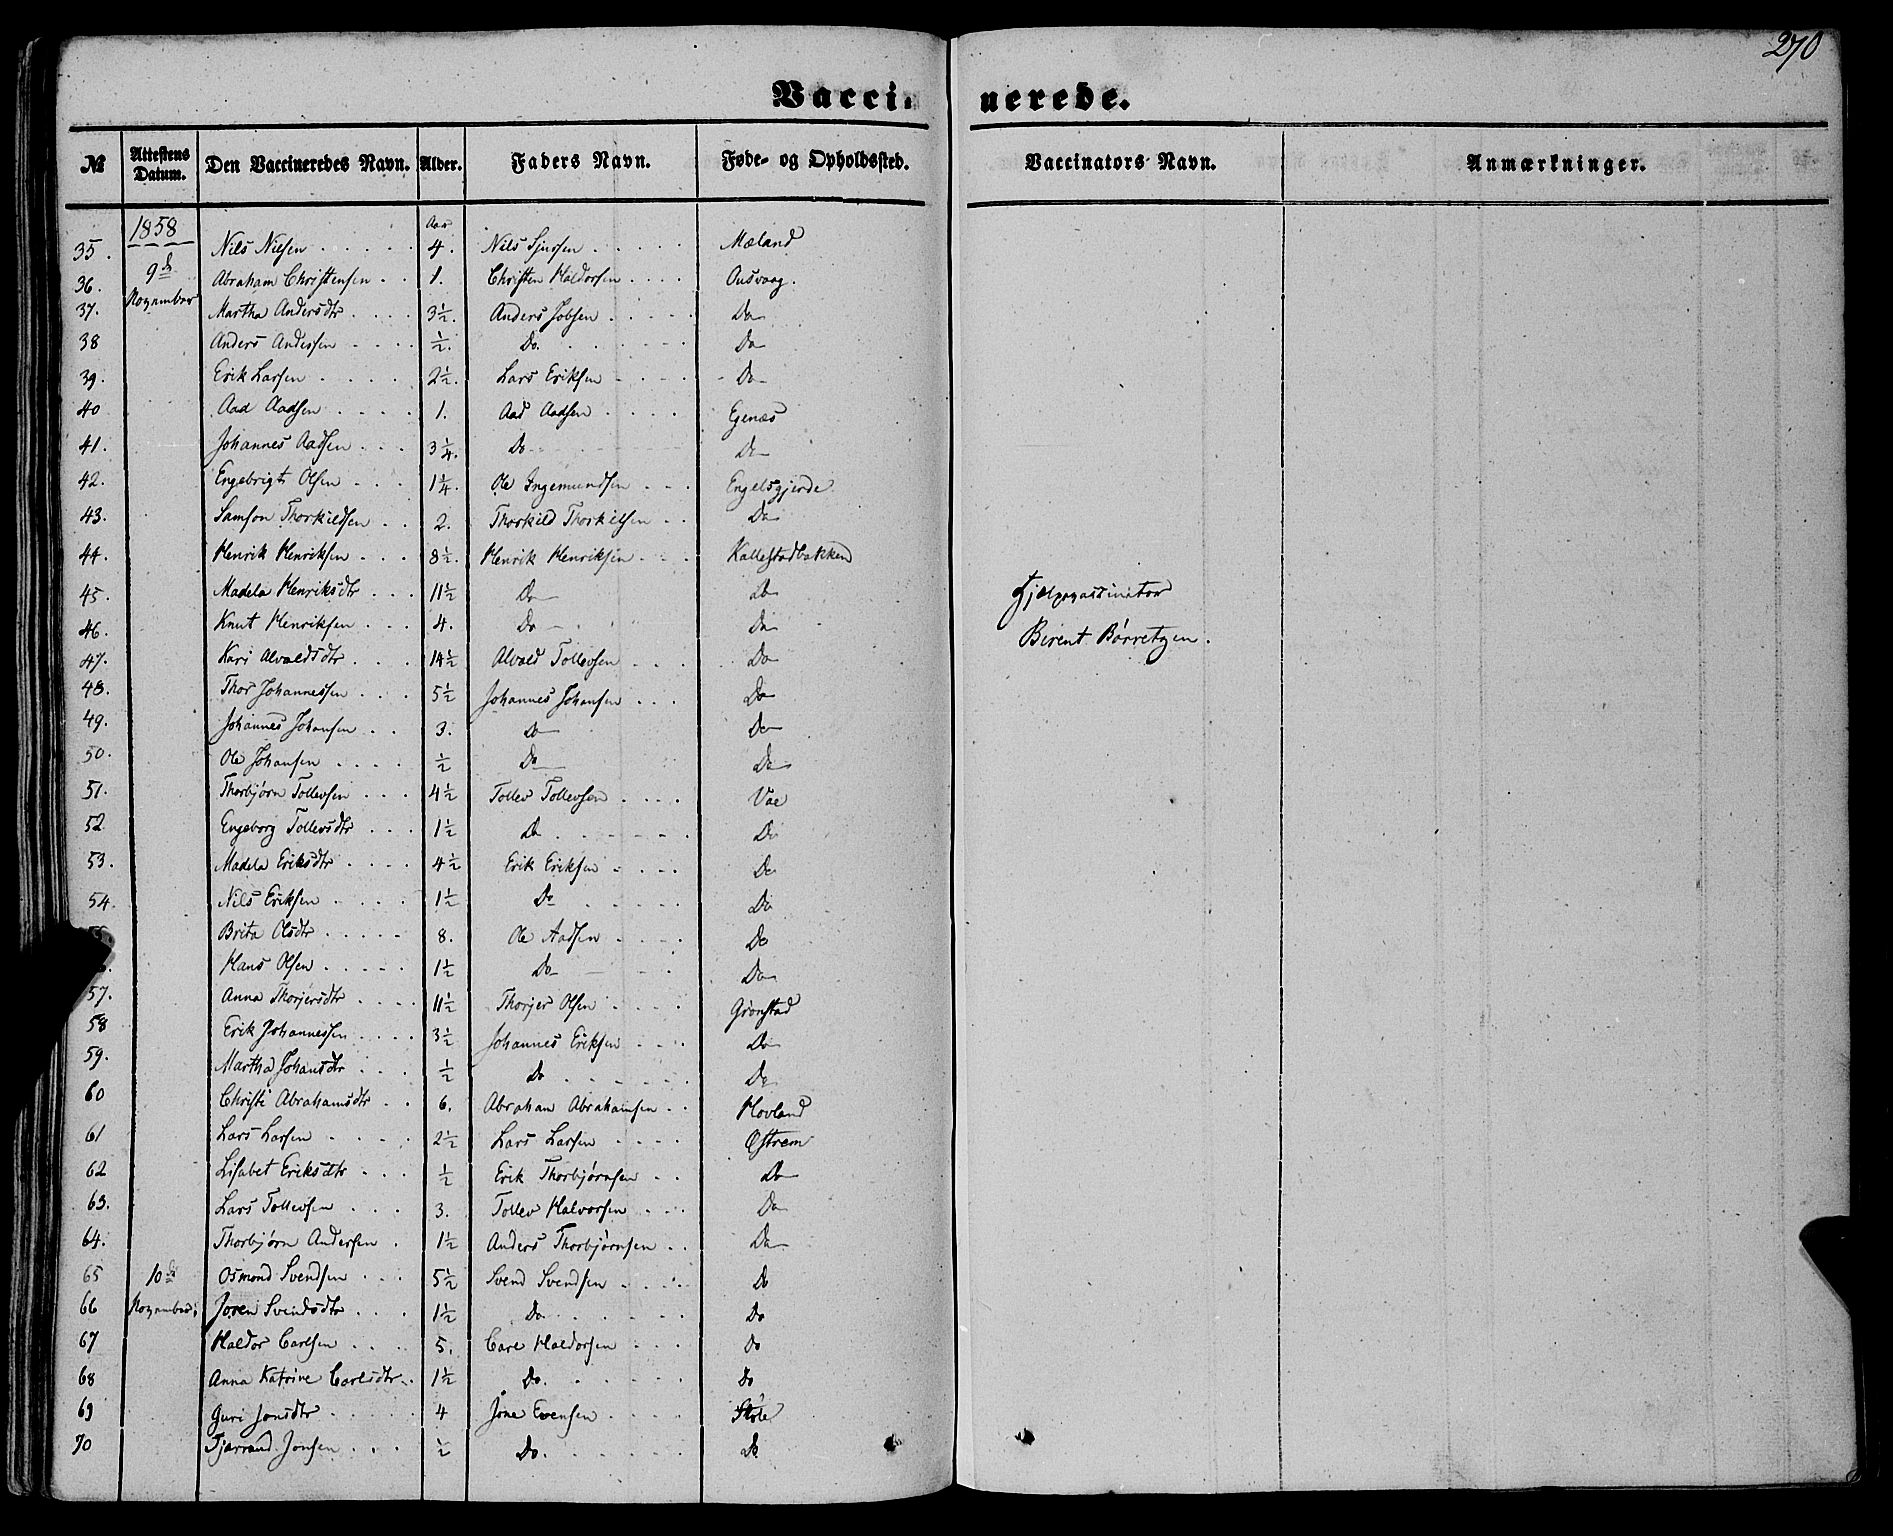 270
Vaccinerede.
№ Attestens Datum. Den Vaccineredes Navn. Alder. Faders Navn. Føde- og Opholdssted. Vaccinators Navn. Anmærkninger.
1858 Aar
35. Nils Nielsen 4. Nils Sjursen Mæland
36. 9de Abraham Christensen 1. Christen Haldorsen Onsvaag.
37. November Martha Andersdtr 3½. Anders Jobsen Do
38 Anders Andersen ½. Do. Do
39. Erik Larsen 2½. Lars Eriksen Do
40 Aad Aadsen 1. Aad Aadsen Egenæs
41. Johannes Aadsen 3¼. Do Do
42. Engebrigt Olsen 1¼. Ole Ingemundsen Engelsgjerde
43. Samson Thorkildsen 2. Thorkild Thorkilsen Do
44. Henrik Henriksen 8½. Henrik Henriksen Kallestadbakken
45. Madela Henriksdtr 11½ Do Do Hjelpevaccinatør
46. Knut Henriksen 4. Do Do Berent Børretzen.
47. Kari Alvaldsdtr 14½ Alvald Tollevsen Do
48. Thor Johannessen 5½ Johannes Johansen Do
49. Johannes Johansen 3. Do Do
50. Ole Johansen ½ Do Do
51. Thorbjørn Tollevsen 4½ Tollev Tollevsen Vae
52 Engeborg Tollevsdtr 1½ Do Do
53. Madela Eriksdtr 4½ Erik Eriksen Do
54. Nils Eriksen 1½ Do Do
Brita Olsdtr 8. Ole Aadsen Do
Hans Olsen 1½ Do Do
57. Anna Thorjersdtr 11½ Thorjer Olsen Grønstad
58 Erik Johannessen 3½ Johannes Eriksen Do
59. Martha Johansdtr ½ Do Do
60 Christi Abrahamsdtr 6. Abraham Abrahamsen Hovland
61 Lars Larsen 2½ Lars Larsen Østrem
62 Lisabet Eriksdtr ½ Erik Thorbjørnsen Do
63. Lars Tollevsen 3. Tollev Halvorsen Do
64. Thorbjørn Andersen 1½ Anders Thorbjørnsen Do
65 10de Osmond Svendsen 5½ Svend Svendsen Do
66 November Joren Svendsdtr 1½ Do Do
67 Haldor Carlsen 5. Carl Haldorsen Do
68 Anna Katrine Carlsdtr 1½ Do. Do
69 Guri Jonsdtr 4 Jone Evensen Støle
70 Tjerrand Jonsen ½ Do. Do